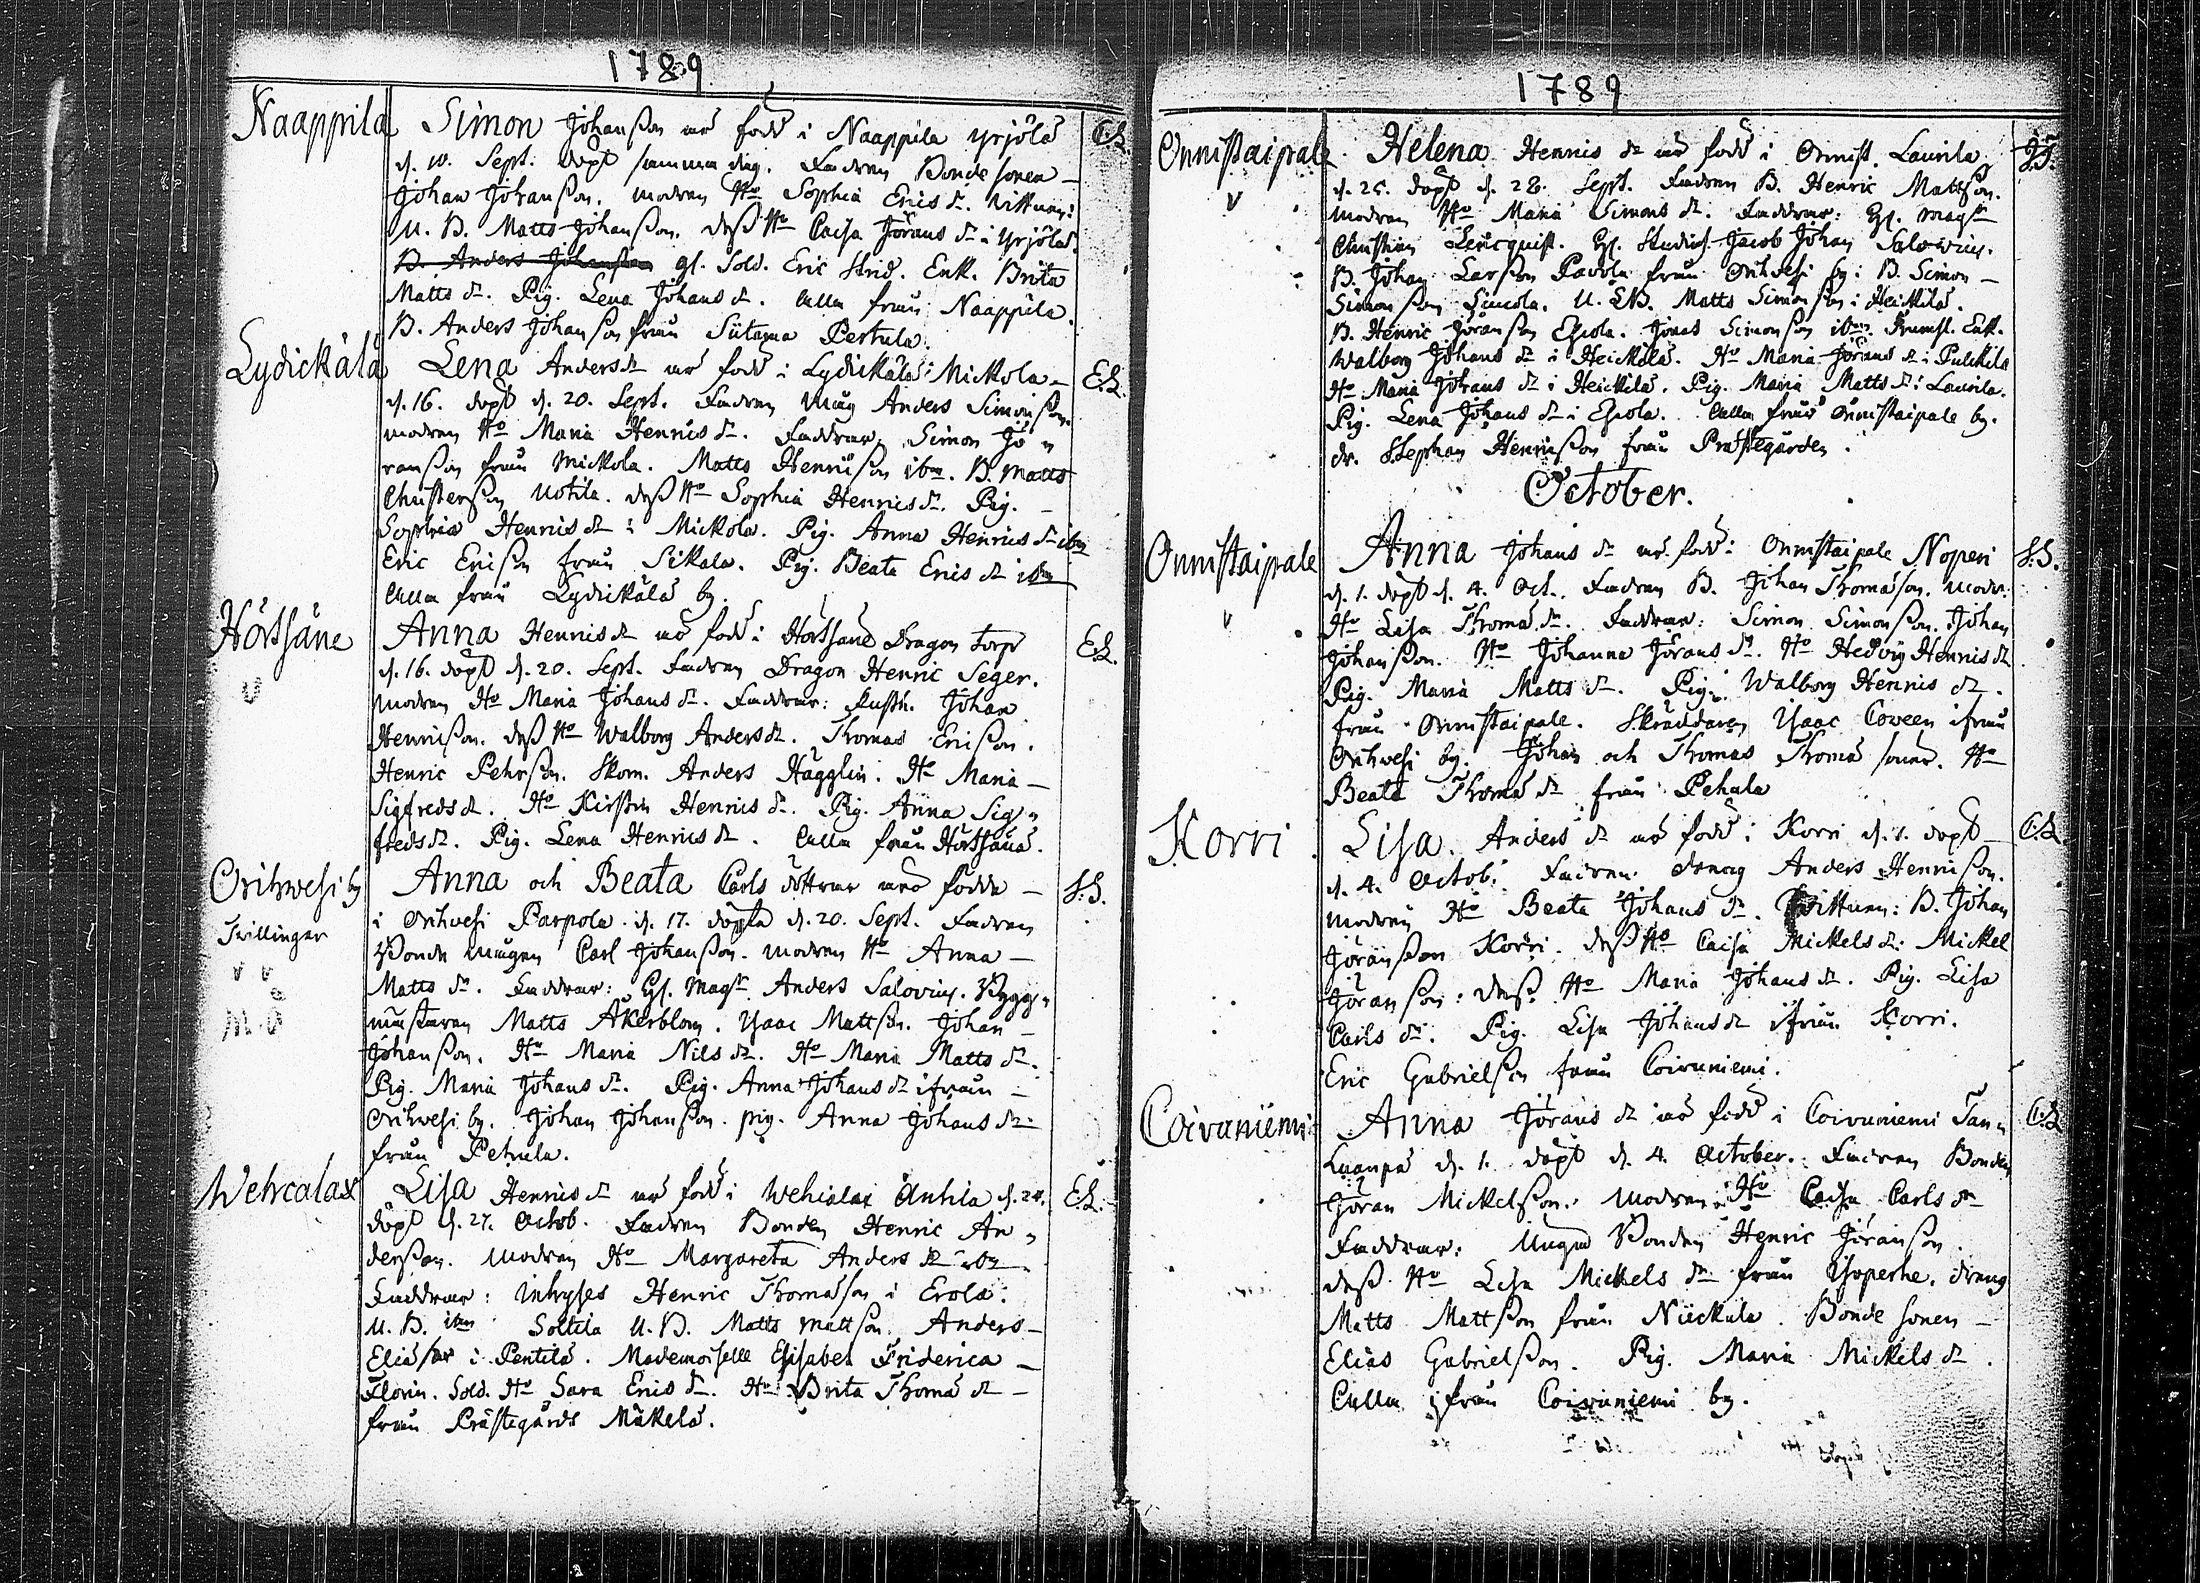 1789
Naappila Simon Johanßon är född i Naappila Yrjölä C.L.
d. 10. Sept. döpt samma dag. Fadren Bonde sonen
Johan Johanßon. modren Ho Sophia Erics dr. Vittnen:
U. B. Matts Johanßon. deß Ho Caisa Jörans dr i Yrjölä.
B. Anders Johanßon gl. Sold. Eric Strid. Enk. Brita
Matts dr. Pig. Lena Johans dr. alla från Naappila.
B. Anders Johanßon från Siitama Pertula.
Lydickälä Lena Anders dr är född i Lydickälä Mickola E.L.
d. 16. döpt d. 20. Sept. Fadren Måg Anders Simonßon.
modren Ho Maria Henrics dr. Faddrar: Simon Jö„
ranßon från Mickola. Matts Henricßon ibm. B. Matts
Christerßon Uotila. deß Ho Sophia Henrics dr. Pig.
Sophia Henrics dr i Mickola. Pig. Anna Henrics dr ibm
Eric Ericßon från Sikala. Pig. Beata Erics dr ibm
alla från Lydickälä by.
Hörtsäne Anna Henrics dr är född i Hörtsäne Dragon torp E.L.
v d. 16. döpt d. 20. Sept. Fadren Dragon Henric Seger.
modren Ho Maria Johans dr. Faddrar: Rusth. Johan
Henricßon. deß Ho Walborg Anders dr. Thomas Ericßon.
Henric Pehrßon. Skom. Anders Hägglin. Ho Maria
Sigfreds dr. Ho Kirstin Henrics dr. Pig. Anna Sig„
freds dr. Pig. Lena Henrics dr. alla från Hörtsänä.
Orihvesi by Anna och Beata Carls döttrar äro födde S.S.
Tvillingar i Orihvesi Parpola d. 17. döpta d. 20. Sept. Fadren
v v Bonde mågen Carl Johanßon. modren Ho Anna
Matts dr. Faddrar: Hl. Magr Anders Salovius. Bygg„
mästaren Matts Åkerblom. Isaac Mattßon. Johan
Johanßon. Ho Maria Nils dr. Ho Maria Matts dr.
Pig. Maria Johans dr. Pig. Anna Johans dr ifrån
Orihvesi by. Johan Johanßon. pig. Anna Johans dr
från Pehula.
Wehcalax Lisa Henrics dr är född i Wehcalax Anttila d. 24. E.L.
döpt d. 27. Octob. Fadren Bonden Henric An„
derßon. modren Ho Margareta Anders dr ibm.
Faddrar: Inhyses Henric Thomasson i Erola.
U. B. ibm Soltila U. B. Matts Mattson. Anders
Elias son i Pentilä. Mademoiselle Elisabet Friderica
Florin. Sold. Ho Sara Erics dr. Ho Brita Thoma dr
från Prästegårds Mäkelä.
1789
Onnistaipale Helena Henrics dr är född i Onnist. Laurila J.F.
v d. 25. döpt d. 28. Sept. Fadren B. Henric Mattßon.
modren Ho Maria Simons dr. Faddrar: Hl. Magr
Christian Lencquist. Hl. Studios. Jacob Johan Salovius.
B. Johan Larßon Pavola från Orihvesi by. B. Simon
Simonßon Simola. U. B. Matts Simonßon i Heickilä.
B. Henric Jöranßon Eerola. Jonas Simonßon ibm. Enk.
Walborg Johans dr i Heickilä. Ho Maria Jörans dr i Pulckila
Ho Maria Johans dr i Heickilä. Pig. Maria Matts dr i Laurila.
Pig. Lena Johans dr i Eerola. alla från Onnistaipale by.
dr. Stephan Henricßon från Prästegården.
October.
Onnistaipale Anna Johans dr är född i Onnistaipale Noperi S.S.
v d. 1. döpt d. 4. Oct. Fadren B. Johan Thomasson. modr.
Ho Lisa Thoma dr. Faddrar: Simon Simonßon. Johan
Johanßon. Ho Johanna Jörans dr. Ho Hedvig Henrics dr
Pig. Maria Matts dr. Pig. Walborg Henrics dr.
från Onnistaipale. Skräddaren Isaac Coveen ifrån
Orihvesi by. Johan och Thomas Thoma söner. Ho
Beata Thoma dr från Pehula
Korri Lisa Anders dr är född i Korri d. 1. döpt C.L.
d. 4. Octob. Fadren dräng Anders Henricßon.
modren Ho Beata Johans dr. Vittnen: B. Johan
Jöranßon Korri. deß Ho Caisa Mickels dr. Mickel
Jöranßon: deß Ho Maria Johans dr. Pig. Lisa
Carls dr. Pig. Lisa Johans dr ifrån Korri.
Eric Gabrielßon från Coivuniemi.
Coivuniemi Anna Jörans dr är född i Coivuniemi Tan„ C.L.
kuanpä d. 1. döpt d. 4. October. Fadren Bonden
Jöran Mickelßon. Modren Ho Caisa Carls dr
Faddrar: Unga Bonden Henric Jöranßon.
deß Ho Lisa Mickels dr från Yliperhe. dräng
Matts Mattßon från Niickula. Bonde sonen
Elias Gabrielßon. Pig. Maria Mickels dr.
Alla ifrån Coivuniemi by.